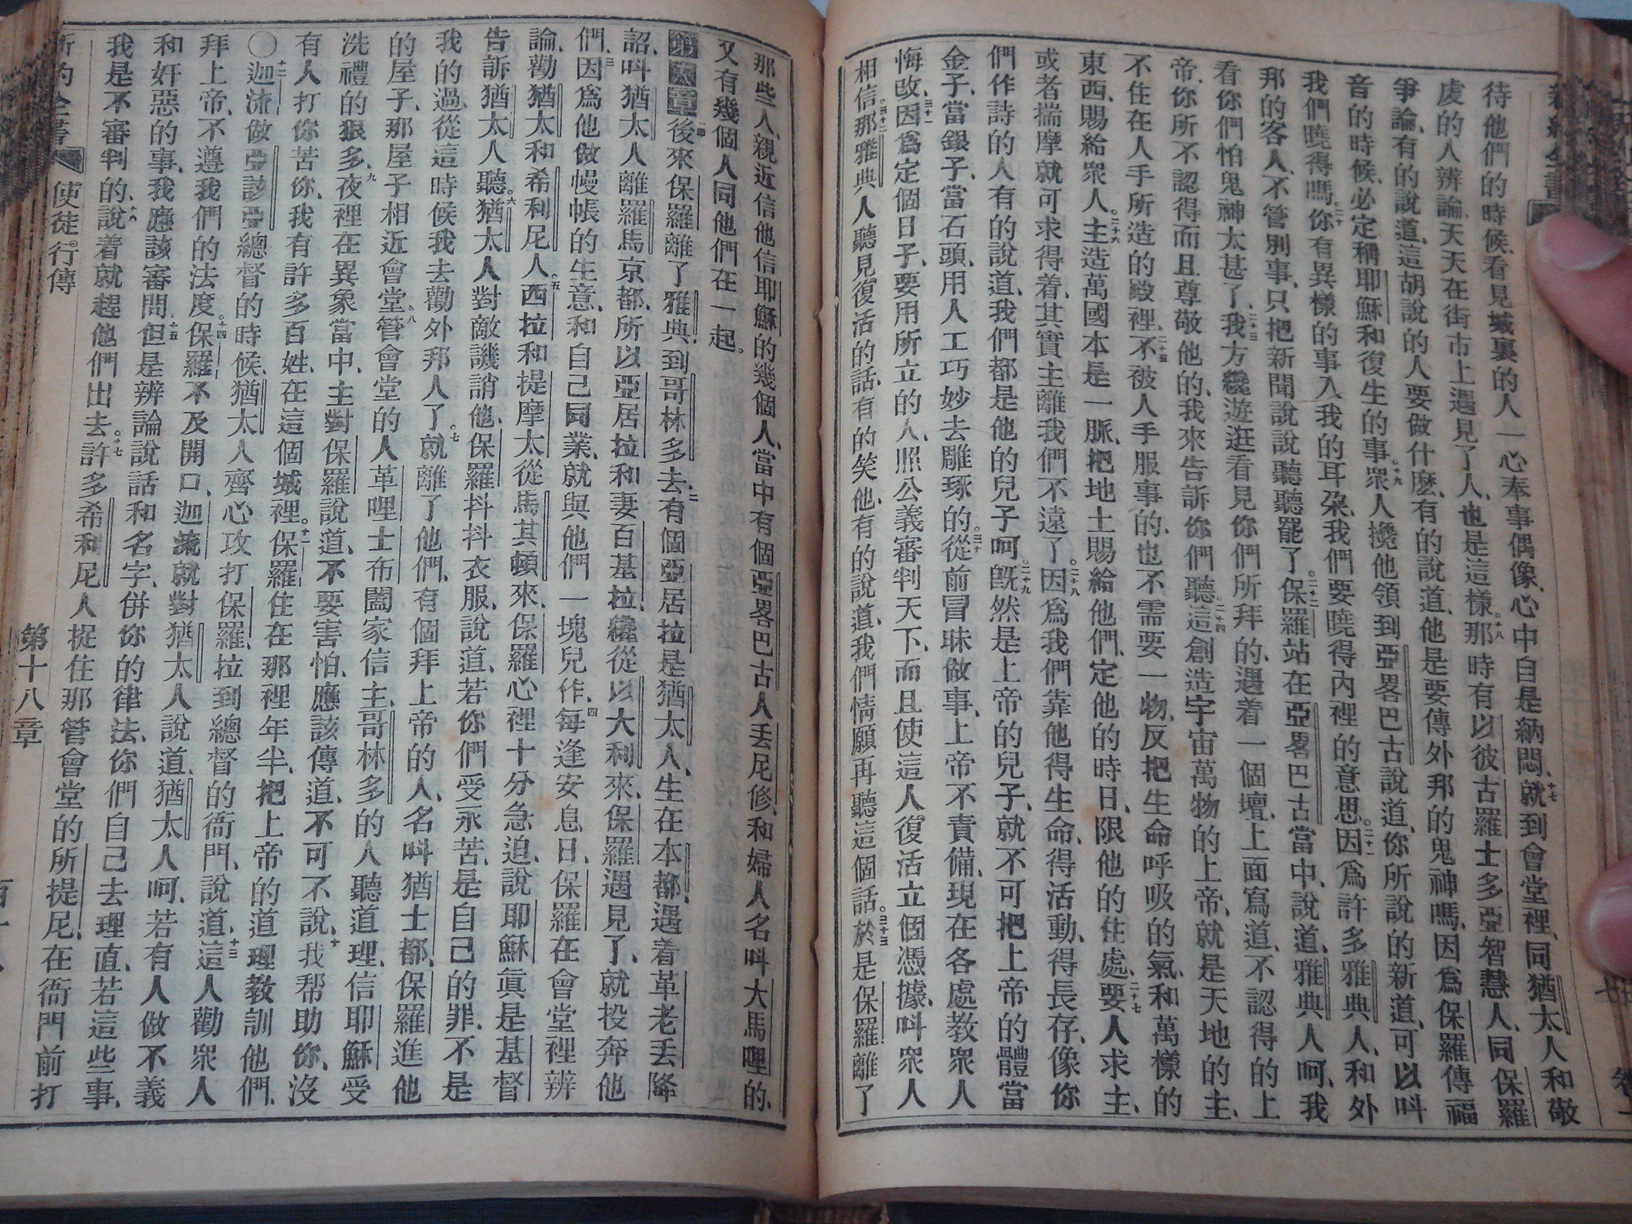 待他們的時候、看見城裏的人一心奉事偶像、心中自是納悶、十七就到會堂裡、同猶太人和敬
虔的人辨論、天天在街市上遇見了人、也是這樣、十八那時有以彼古羅士多亞智慧人、同保羅
爭論、有的說道、這胡說的人要做什麽、有的說道、他是要傳外邦的鬼神嗎、因爲保羅傳福
音的時候、必定稱耶穌和復生的事。十九衆人攙他領到亞畧巴古說道、你所說的新道、可以呌
我們曉得嗎、二十你有異樣的事入我的耳朶、我們要曉得內裡的意思。二十一因爲許多雅典人、和外
邦的客人、不管別事、只把新聞說說聽聽罷了。二十二保羅站在亞畧巴古當中、說道、雅典人呵、我
看你們怕鬼神太甚了、二十三我方纔遊逛看見你們所拜的、遇着一個壇、上面寫道、不認得的上
帝、你所不認得而且尊敬他的、我來告訴你們聽、二十四這創造宇宙萬物的上帝、就是天地的主、
不住在人手所造的殿裡、二十五不彼人手服事的、也不需要一物、反把生命呼吸的氣、和萬樣的
東西、賜給衆人。二十六主造萬國本是一脈、把地土賜給他們、定他的時日、限他的住處、二十七要人求主、
或者揣摩就可求得着、其實主離我們不遠了。二十八因爲我們靠他得生命、得活動、得長存、像你
們作詩的人有的說道、我們都是他的兒子呵、二十九旣然是上帝的兒子、就不可把上帝的體當
金子、當銀子、當石頭、用人工巧妙去雕琢的。三十從前冒昧做事、上帝不責備、現在各處教衆人
悔改、三十一因爲定個日子、要用所立的人、照公義審判天下、而且使這人復活立個憑據、呌衆人
相信、三十二那雅典人聽見復活的話、有的笑他、有的說道、我們情願再聽這個話。三十三於是保羅離了
那些人、親近信他信耶穌的幾個人、當中有個亞畧巴古人丟尼修、和婦人名呌大馬哩的、
又有幾個人同他們在一起。
第十八章 後來保羅離了雅典、到哥林多去、二有個亞居拉是猶太人、生在本都、遇着革老丢降
詔、呌猶太人離羅馬京都、所以亞居拉和妻百基拉、纔從以大利來、保羅遇見了、就投奔他
們、三因爲他做幔帳的生意、和自己同業、就與他們一塊兒作、四每逢安息日、保羅在會堂裡辨
論、勸猶太和希利尼人。五西拉和提摩太從馬其頓來、保羅心裡十分急迫、說耶穌眞是基督
告訴猶太人聽。六猶太人對敵譏誚他、保羅抖抖衣服、說道、若你們受永苦、是自己的罪、不是
我的過、從這時候我去勸外邦人了。七就離了他們、有個拜上帝的人、名呌猶士都、保羅進他
的屋子、那屋子相近會堂。八管會堂的人革哩士布、闔家信主、哥林多的人聽道理、信耶穌受
洗禮的狠多、九夜裡在異象當中、主對保羅說道、不要害怕、應該傳道、不可不說、十我帮助你、沒
有人打你苦你、我有許多百姓、在這個城裡。十一保羅住在那裡年半、把上帝的道理教訓他們、
〇十二迦流做亞該亞總督的時候、猶太人齊心攻打保羅、拉到總督的衙門、說道、十三這人勸衆人
拜上帝、不遵我們的法度、十四保羅不及開口、迦流就對猶太人說道、猶太人呵、若有人做不義
和奸惡的事、我應該審問、十五但是辨論說話和名字、併你的律法、你們自己去理直、若這些事、
我是不審判的、十六說着就趕他們出去。十七許多希利尼人捉住那管會堂的所提尼、在衙門前打
使徒行傳
第十八章